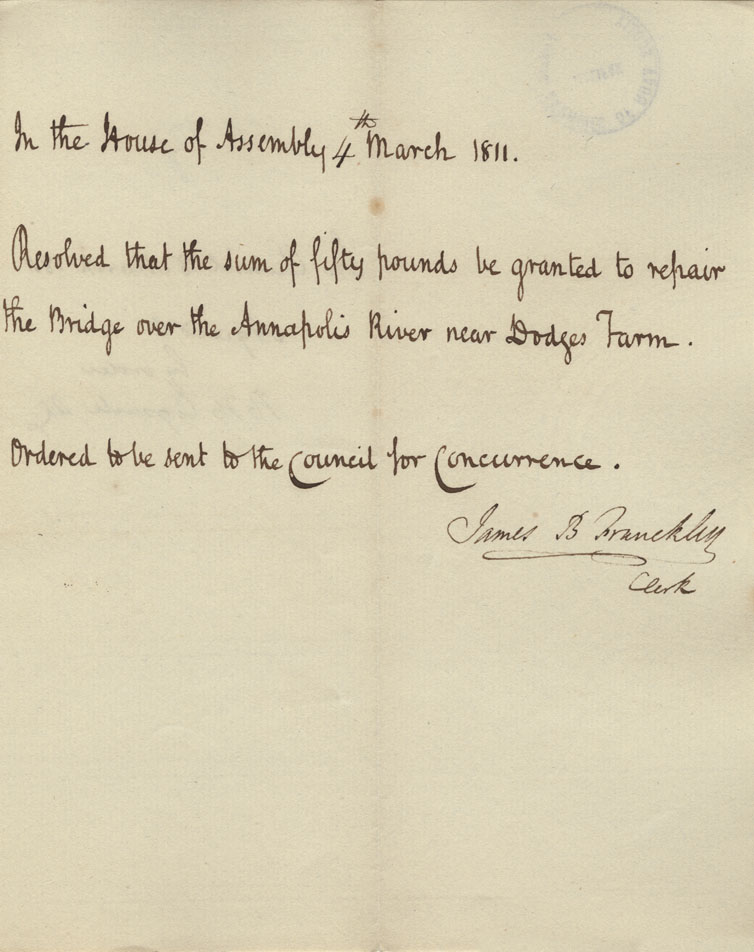 In the House of Assembly 4th March 1811.
Resolved that the sum of fifty pounds be granted to repair
the Bridge over the Annapolis River near Dodges Farm.
Ordered to be sent to the Council for Concurrence.
James B Franckley
Clerk